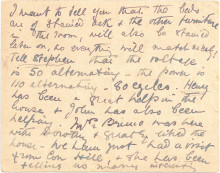 I want to tell you that the beds
are stained dark & the other furniture
in the room, will also be stained
later on, so everything will match nicely.
Tell Stephen that the voltage
is 50 alternating - the power is
110 alternating - 60 cycles. Henry
has been a great help in the
house & John has also been
helping. Mrs Bruno was here
with Dorothy & greatly liked the
house - We have just had a visit
from Con Hill & she has been
telling us many